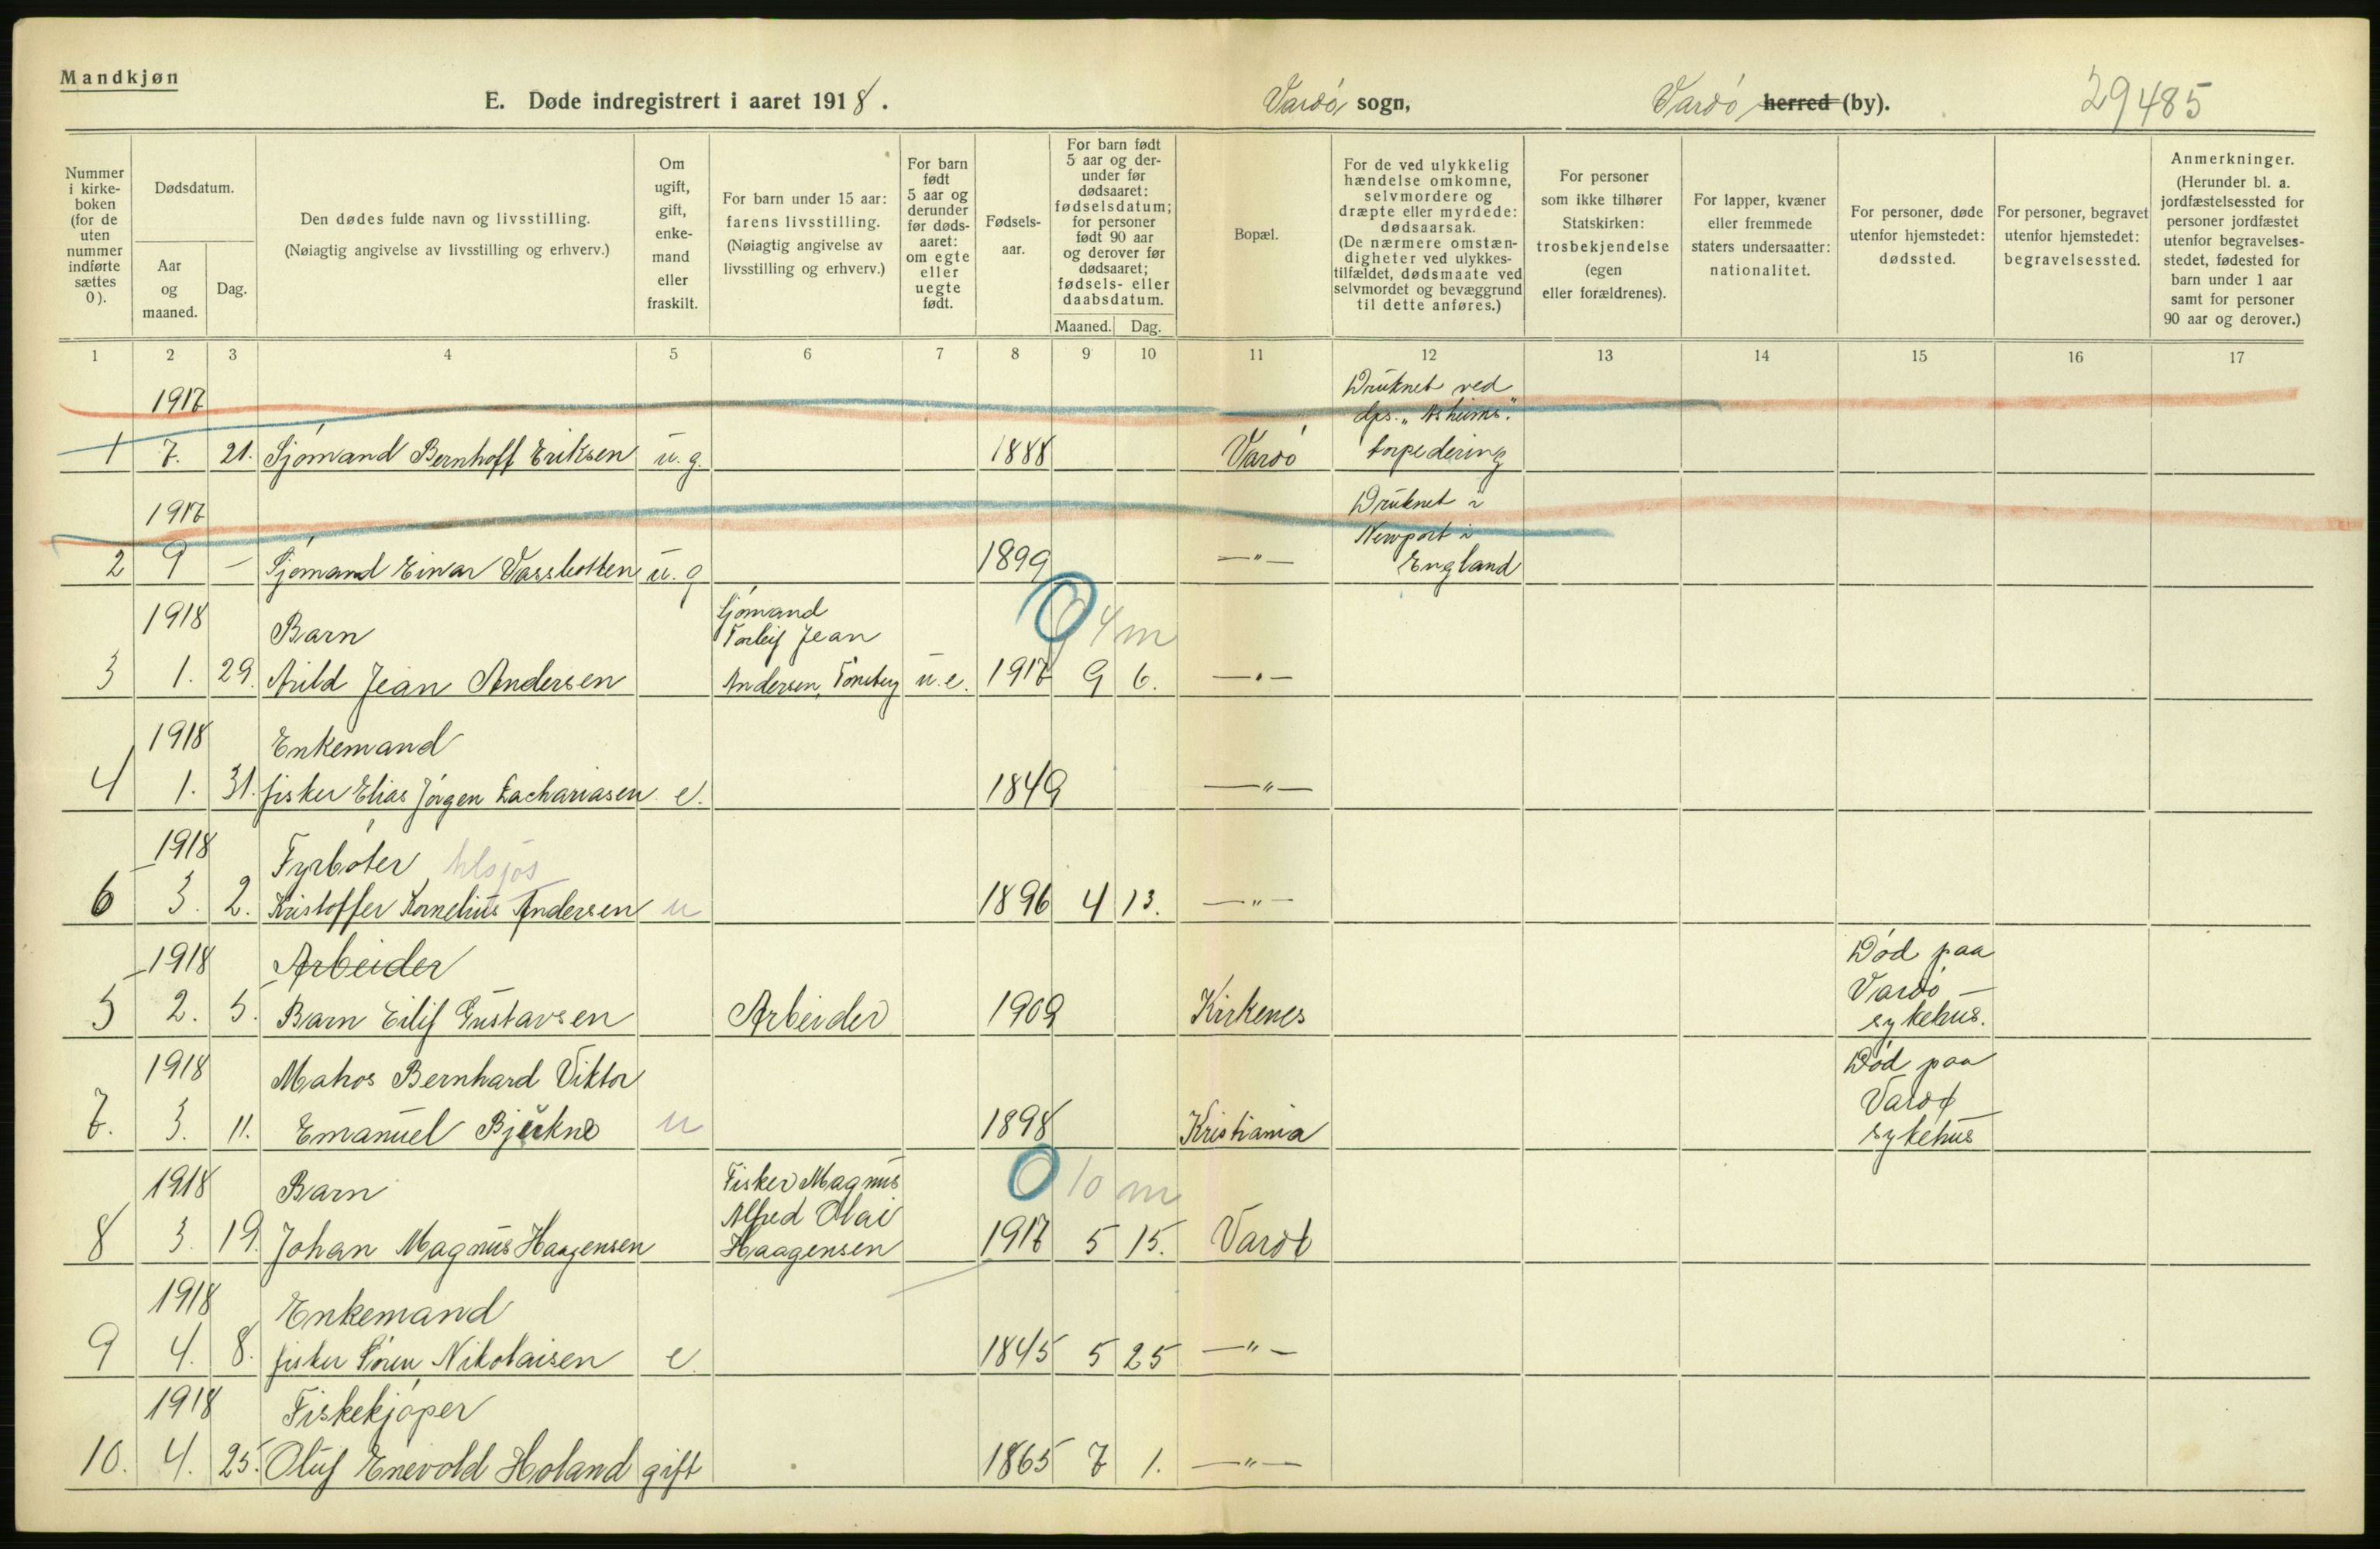 Mandkjøn
E. Døde indregistrert i aaret 1918.
Vardö sogn,
Vardö herred (by).
29485
Nummer i kirke-boken (for de uten nummer indførte sættes 0).
Dødsdatum.
Aar og maaned.
Dag.
Den dødes fulde navn og livsstilling.
(Nøiagtig angivelse av livsstilling og erhverv.)
Om ugift, gift, enke-mand eller fraskilt.
For barn under 15 aar: farens livsstilling.
(Nøiagtig angivelse av livsstilling og erhverv.)
For barn født 5 aar og derunder før døds-aaret: om egte eller uegte født.
Fødsels-aar.
For barn født 5 aar og der-under før dødsaaret: fødselsdatum; for personer født 90 aar og derover før dødsaaret; fødsels- eller daabsdatum.
Maaned. Dag.
Bopæl.
For de ved ulykkelig hændelse omkomne, selvmordere og dræpte eller myrdede: dødsaarsak.
(De nærmere omstæn-digheter ved ulykkes-tilfældet, dødsmaate ved selvmordet og bevæggrund til dette anføres.)
For personer som ikke tilhører Statskirken: trosbekjendelse (egen eller forældrenes).
For lapper, kvæner eller fremmede staters undersaatter: nationalitet.
For personer, døde utenfor hjemstedet: dødssted.
For personer, begravet utenfor hjemstedet: begravelsessted.
Anmerkninger.
(Herunder bl. a. jordfæstelsessted for personer jordfæstet utenfor begravelses-stedet, fødested for barn under 1 aar samt for personer 90 aar og derover.)
1 2 3 4 5 6 7 8 9 10 11 12 13 14 15 16 17
1917 Druknet ved
dps. „
1 7. 21. Sjömand Bernhoff Eriksen u. g. 1888 Vardö torpedering
1917 Druknet i
Newport i
2 9 – Sjömand Einar Vassbotten u. g 1899 —"— England
1918 Barn Sjömand Torleif Jean 0 4 m
3 1. 29. Arild Jean Andersen Andersen, Tönsberg u. e. 1917 9 6. —"—
1918 Enkemand
4 1. 31. fisker Elias Jörgen Zachariasen e. 1849 —"—
1918 Fyrböter
6 3. 2. Kristoffer Kornelius Andersen u 1896 4 13. —"—
1918 Arbeider Död paa
Vardö
5 2. 5. Barn Eilif Gustavsen Arbeider 1909 Kirkenes sykehus.
1918 Matros Bernhard Viktor Död paa
Vardø
7. 3. 11. Emanuel u 1898 Kristiania sykehus
1918 Barn Fisker Magnus 0 10 m
Alfred Olai
8 3. 19. Johan Magnus Haagensen Haagensen 1917 5 15. Vardø
1918 Enkemand
9 4. 8. fisker Sören Nikolaisen e 1845 5 25 —"—
1918 Fiskekjöper
10. 4. 25. Oluf Enevold Holand gift 1865 7 1. —"—